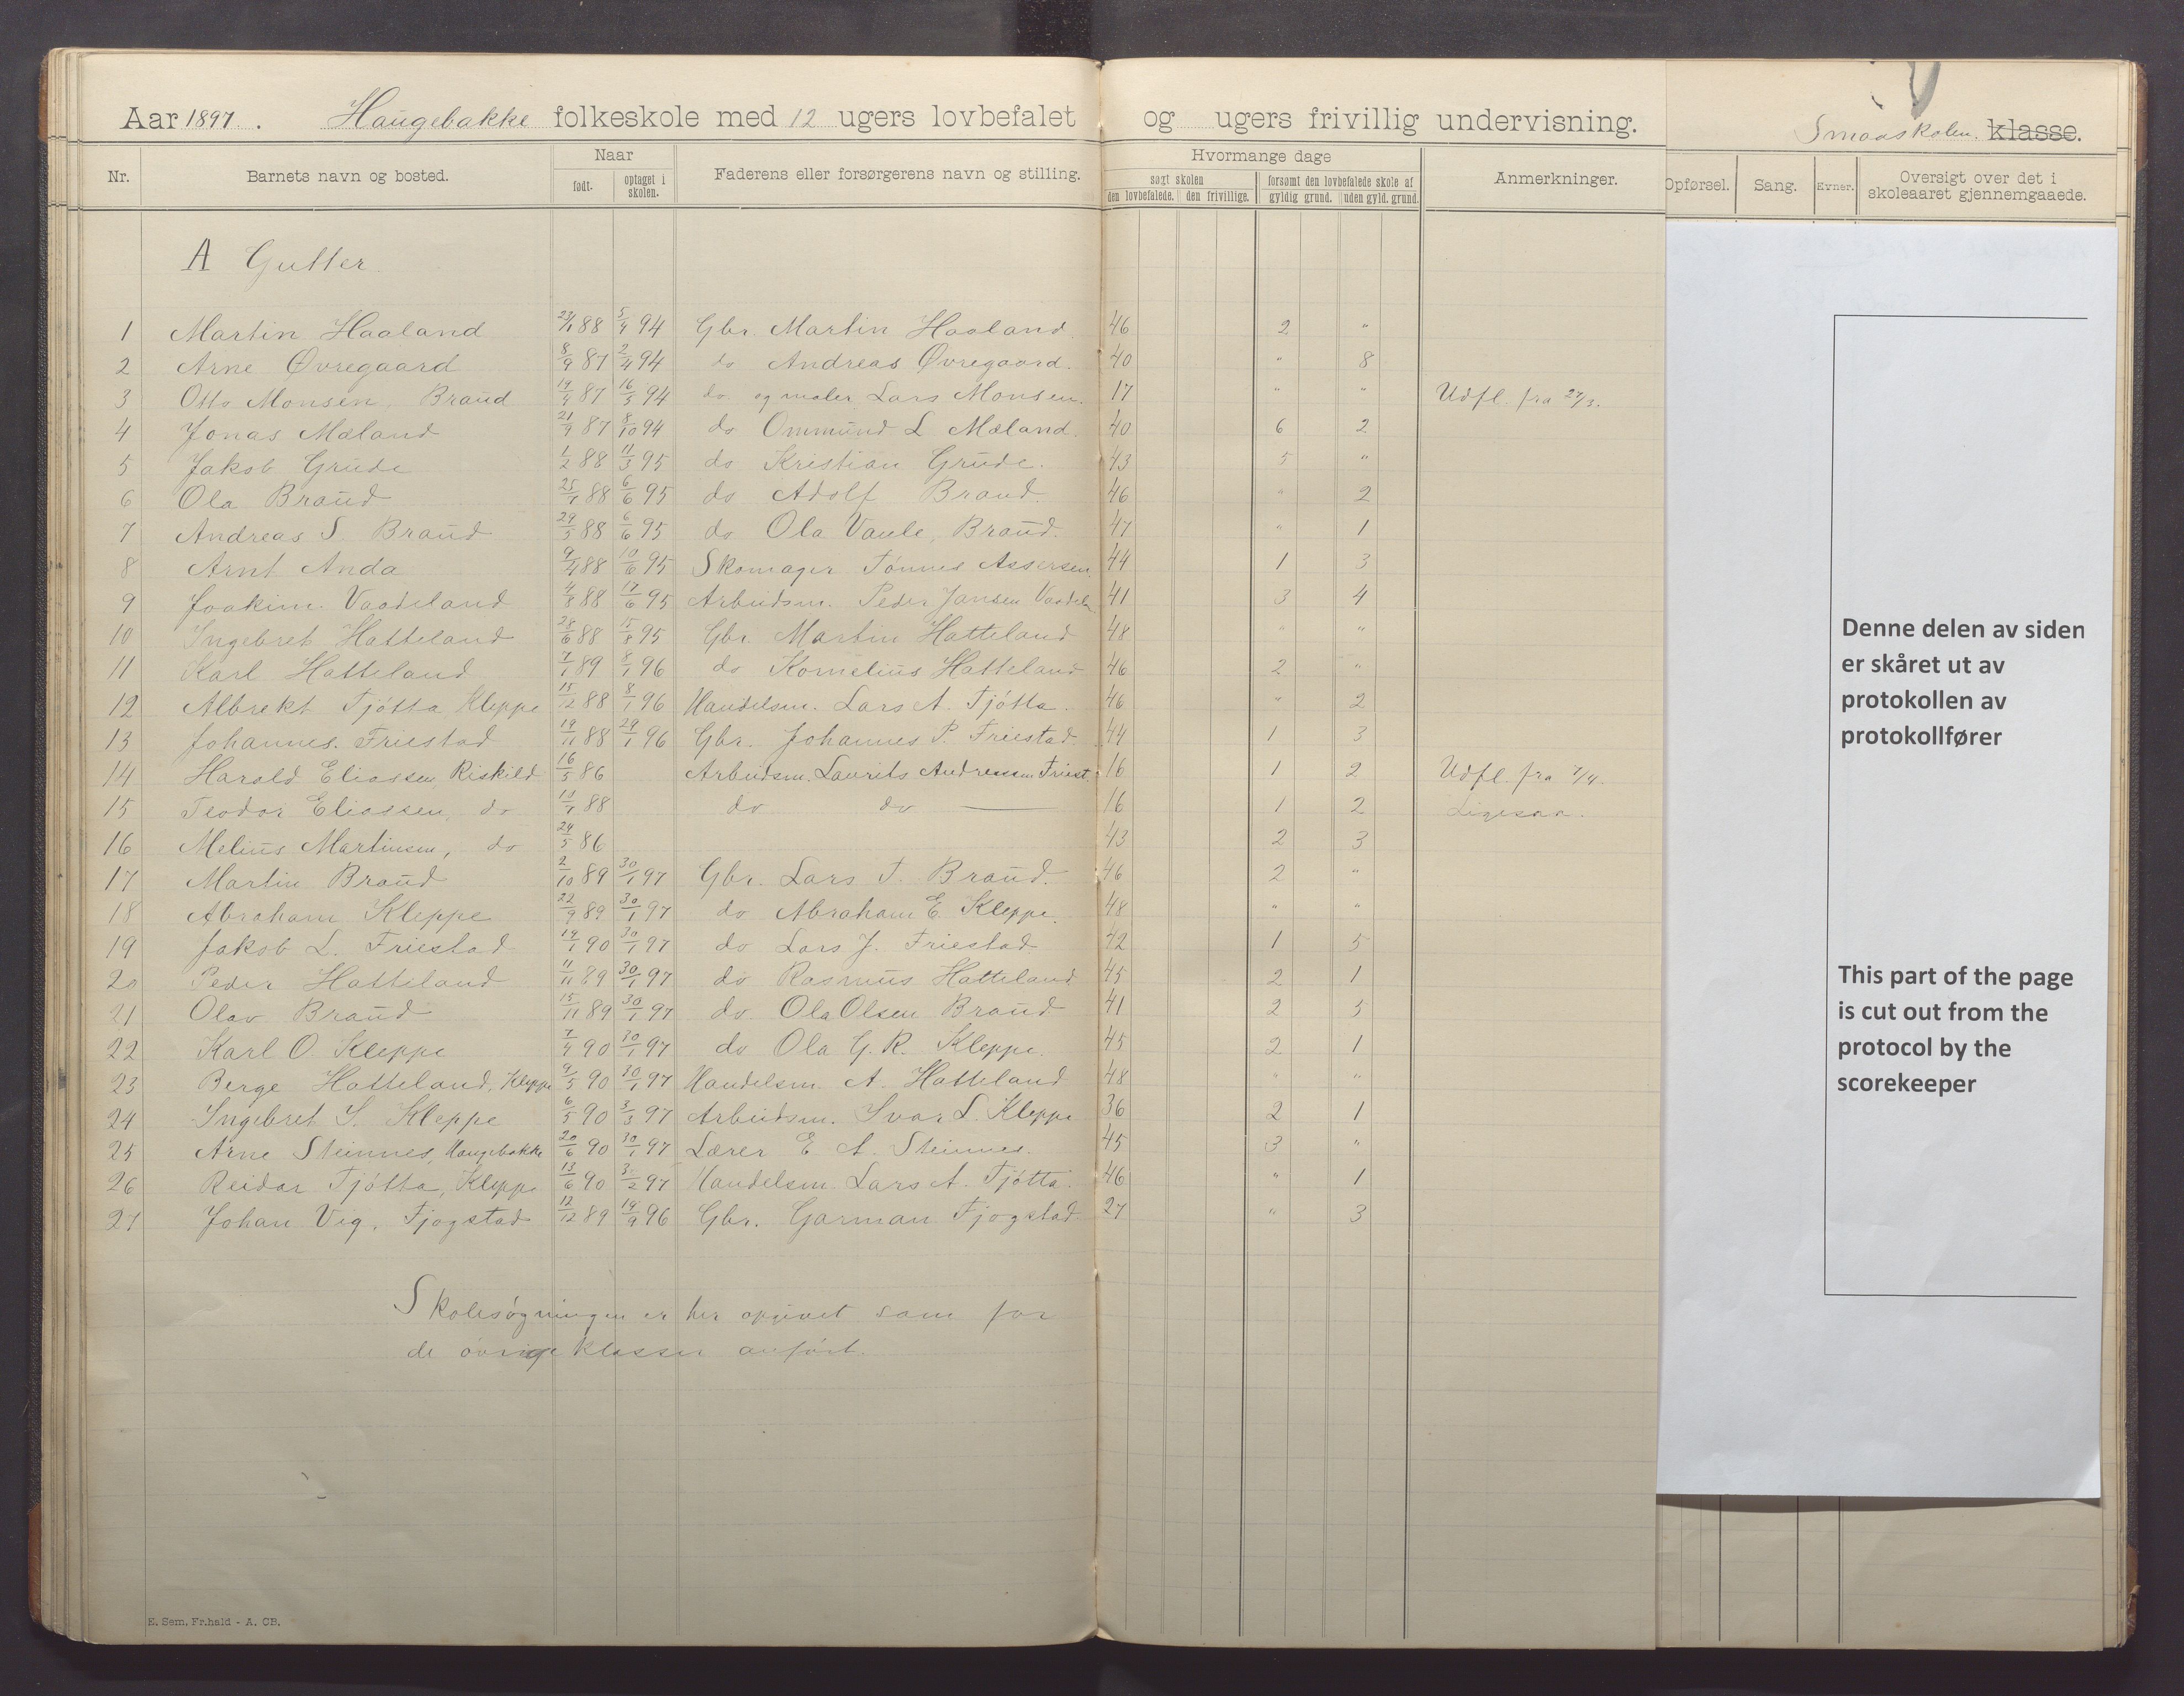 Aar 1897. Haugebakke folkeskole med 12 ugers lovbefalet og ugers frivillig undervisning. Smaaskolen. klasse.
Nr. Barnets navn og bosted. Naar født. optaget i skolen. Faderens eller forsørgerens navn og stilling. Hvormange dage søgt skolen den lovbefalede. den frivillige. forsømt den lovbefalede skole af gyldig grund. uden gyld. grund. Anmerkninger. Opførsel. Sang. Evner. Oversigt over det i skoleaaret gjennemgaaede.
A Gutter
1 Martin Haaland 23/1 88 5/4 94 Gbr. Martin Haaland 46 2 "
2 Arne Øvregaard 8/9 87 2/4 94 do Andreas Øvregaard. 40 " 8
3 Otto Monsen, Braud 14/4 87 16/5 94 do og maler Lars Monsen. 17 " " Udfl. fra 27/3.
4 Jonas Mæland 21/9 87 8/10 94 do Ommund L Mæland. 40 6 2
5 Jakob Grude 1/2 88 11/3 95 do Kristian Grude. 43 5 "
6 Ola Braud 25/1 88 6/6 95 do Adolf Braud. 46 " 2
7 Andreas S. Braud 29/3 88 6/6 95 do Ola Vaule, Braud. 47 " 1
8 Arnt Anda 9/4 88 10/6 95 Skomager Tønnes Assersen. 44 1 3
9 Joakim Vaadeland 4/8 88 17/6 95 Arbeidsm. Peder Jansen Vaadel. 41 3 4
10 Ingebret Hatteland 28/6 88 15/8 95 Gbr. Martin Hatteland 48 " "
11 Karl Hatteland 7/1 89 8/1 96 do Kornelius Hatteland 46 2 "
12 Albrekt Tjøtta Kleppe 15/12 88 8/1 96 Handelsm. Lars A. Tjøtta. 46 " 2
13 Johannes. Friestad 19/11 88 29/1 96 Gbr. Johannes P. Friestad. 44 1 3
14 Harald Eliassen, Riskild 16/5 86 Arbeidsm. Laurits Andreassen Friest. 16 1 2 Udfl. fra 7/4.
15 Teodor Eliassen, do 88 do do 16 1 2 Ligesaa.
16 Melius Martinsen, do 24/5 86 43 2 3
17 Martin Braud 2/10 89 30/1 97 Gbr. Lars T. Braud. 46 2 "
18 Abraham Kleppe 22/9 89 30/1 97 do Abraham E. Kleppe. 48 " "
19 Jakob L. Friestad 19/1 90 30/1 97 do Lars J. Friestad 42 1 5
20 Peder Hatteland 11/11 89 30/1 97 do Rasmus Hatteland 45 2 1
21 Olav Braud 15/11 89 30/1 97 do Ola Olsen Braud 41 2 5
22 Karl O. Kleppe 7/4 90 30/1 97 do Ola G. R. Kleppe. 45 2 1
23 Berge Hatteland, Kleppe 9/5 90 30/1 97 Handelsm. A. Hatteland 48 " "
24 Ingebret S. Kleppe 6/5 90 3/3 97 Arbeidsm. Ivar L. Kleppe 36 2 1
25 Arne Steinnes, Haugebakke 20/6 90 30/1 97 Lærer E A. Steinnes. 45 3 "
26 Reidar Tjøtta, Kleppe 13/6 90 3/2 97 Handelsm. Lars A. Tjøtta. 46 " 1
27 Johan Vig, Tjøgstad 12/12 89 19/9 96 Gbr. Garman Tjogstad. 27 " 3
Skolesøgningen er her opgivet som for
de øvrige klasser anført.
E. Sem, Fr.hald - A. CB.
Denne delen av siden
er skåret ut av
protokollen av
protokollfører
This part of the page
is cut out from the
protocol by the
scorekeeper